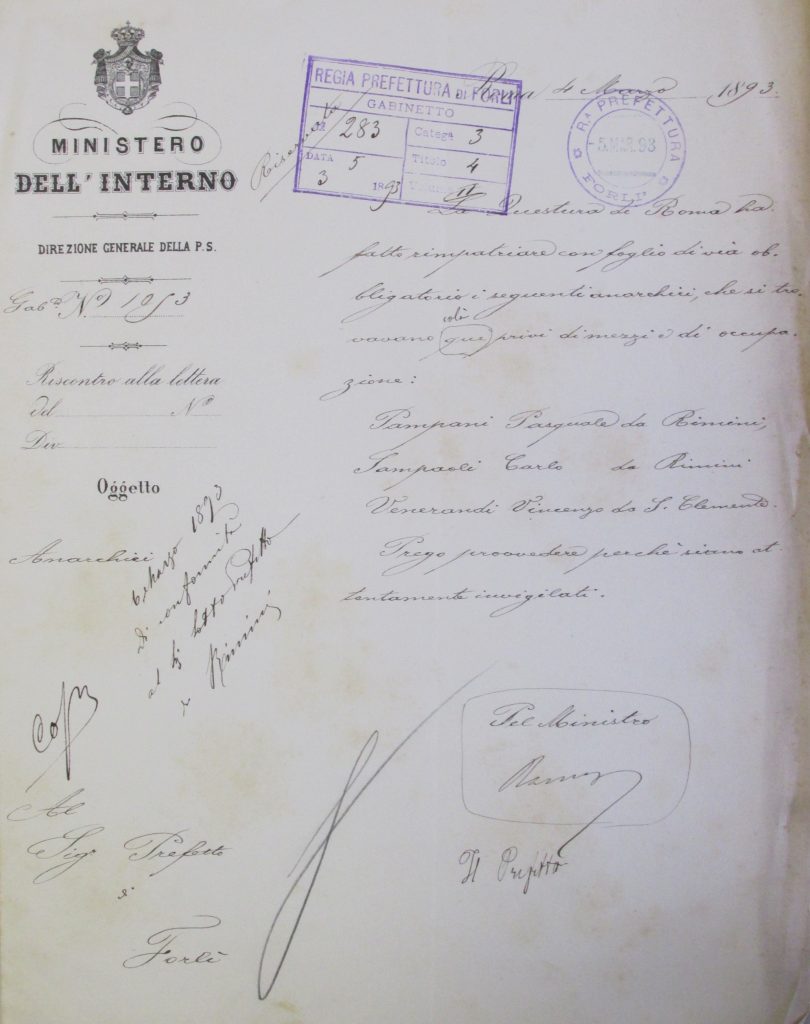 MINISTERO
DELL'INTERNO
DIREZIONE GENERALE DELLA P.S.
Gab.° N.° 1053
Riscontro alla lettera
del N.°
Div.
Oggetto
Anarchici
Riservata
REGIA PREFETTURA DI FORLÌ
GABINETTO
N. 283
Categ.ª 3
DATA 5
Titolo 4
3 1893
Roma 4 Marzo 1893.
Rª PREFETTURA
5.MAR.93
FORLI'
La Questura di Roma ha
fatto rimpatriare con foglio di via ob-
bligatorio i seguenti anarchici, che si tro-
colà
vavano qui privi di mezzi e di occupa-
zione:
Pampani Pasquale da Rimini,
Sampaoli Carlo da Rimini
Venerandi Vincenzo da S. Clemente.
Prego provvedere perchè siano at-
tentamente invigilati.
6 Marzo 1893
Di conformità
al Sotto Prefetto
Rimini
Pel Ministro
Il Prefetto
Al
Sig. Prefetto
di
Forlì